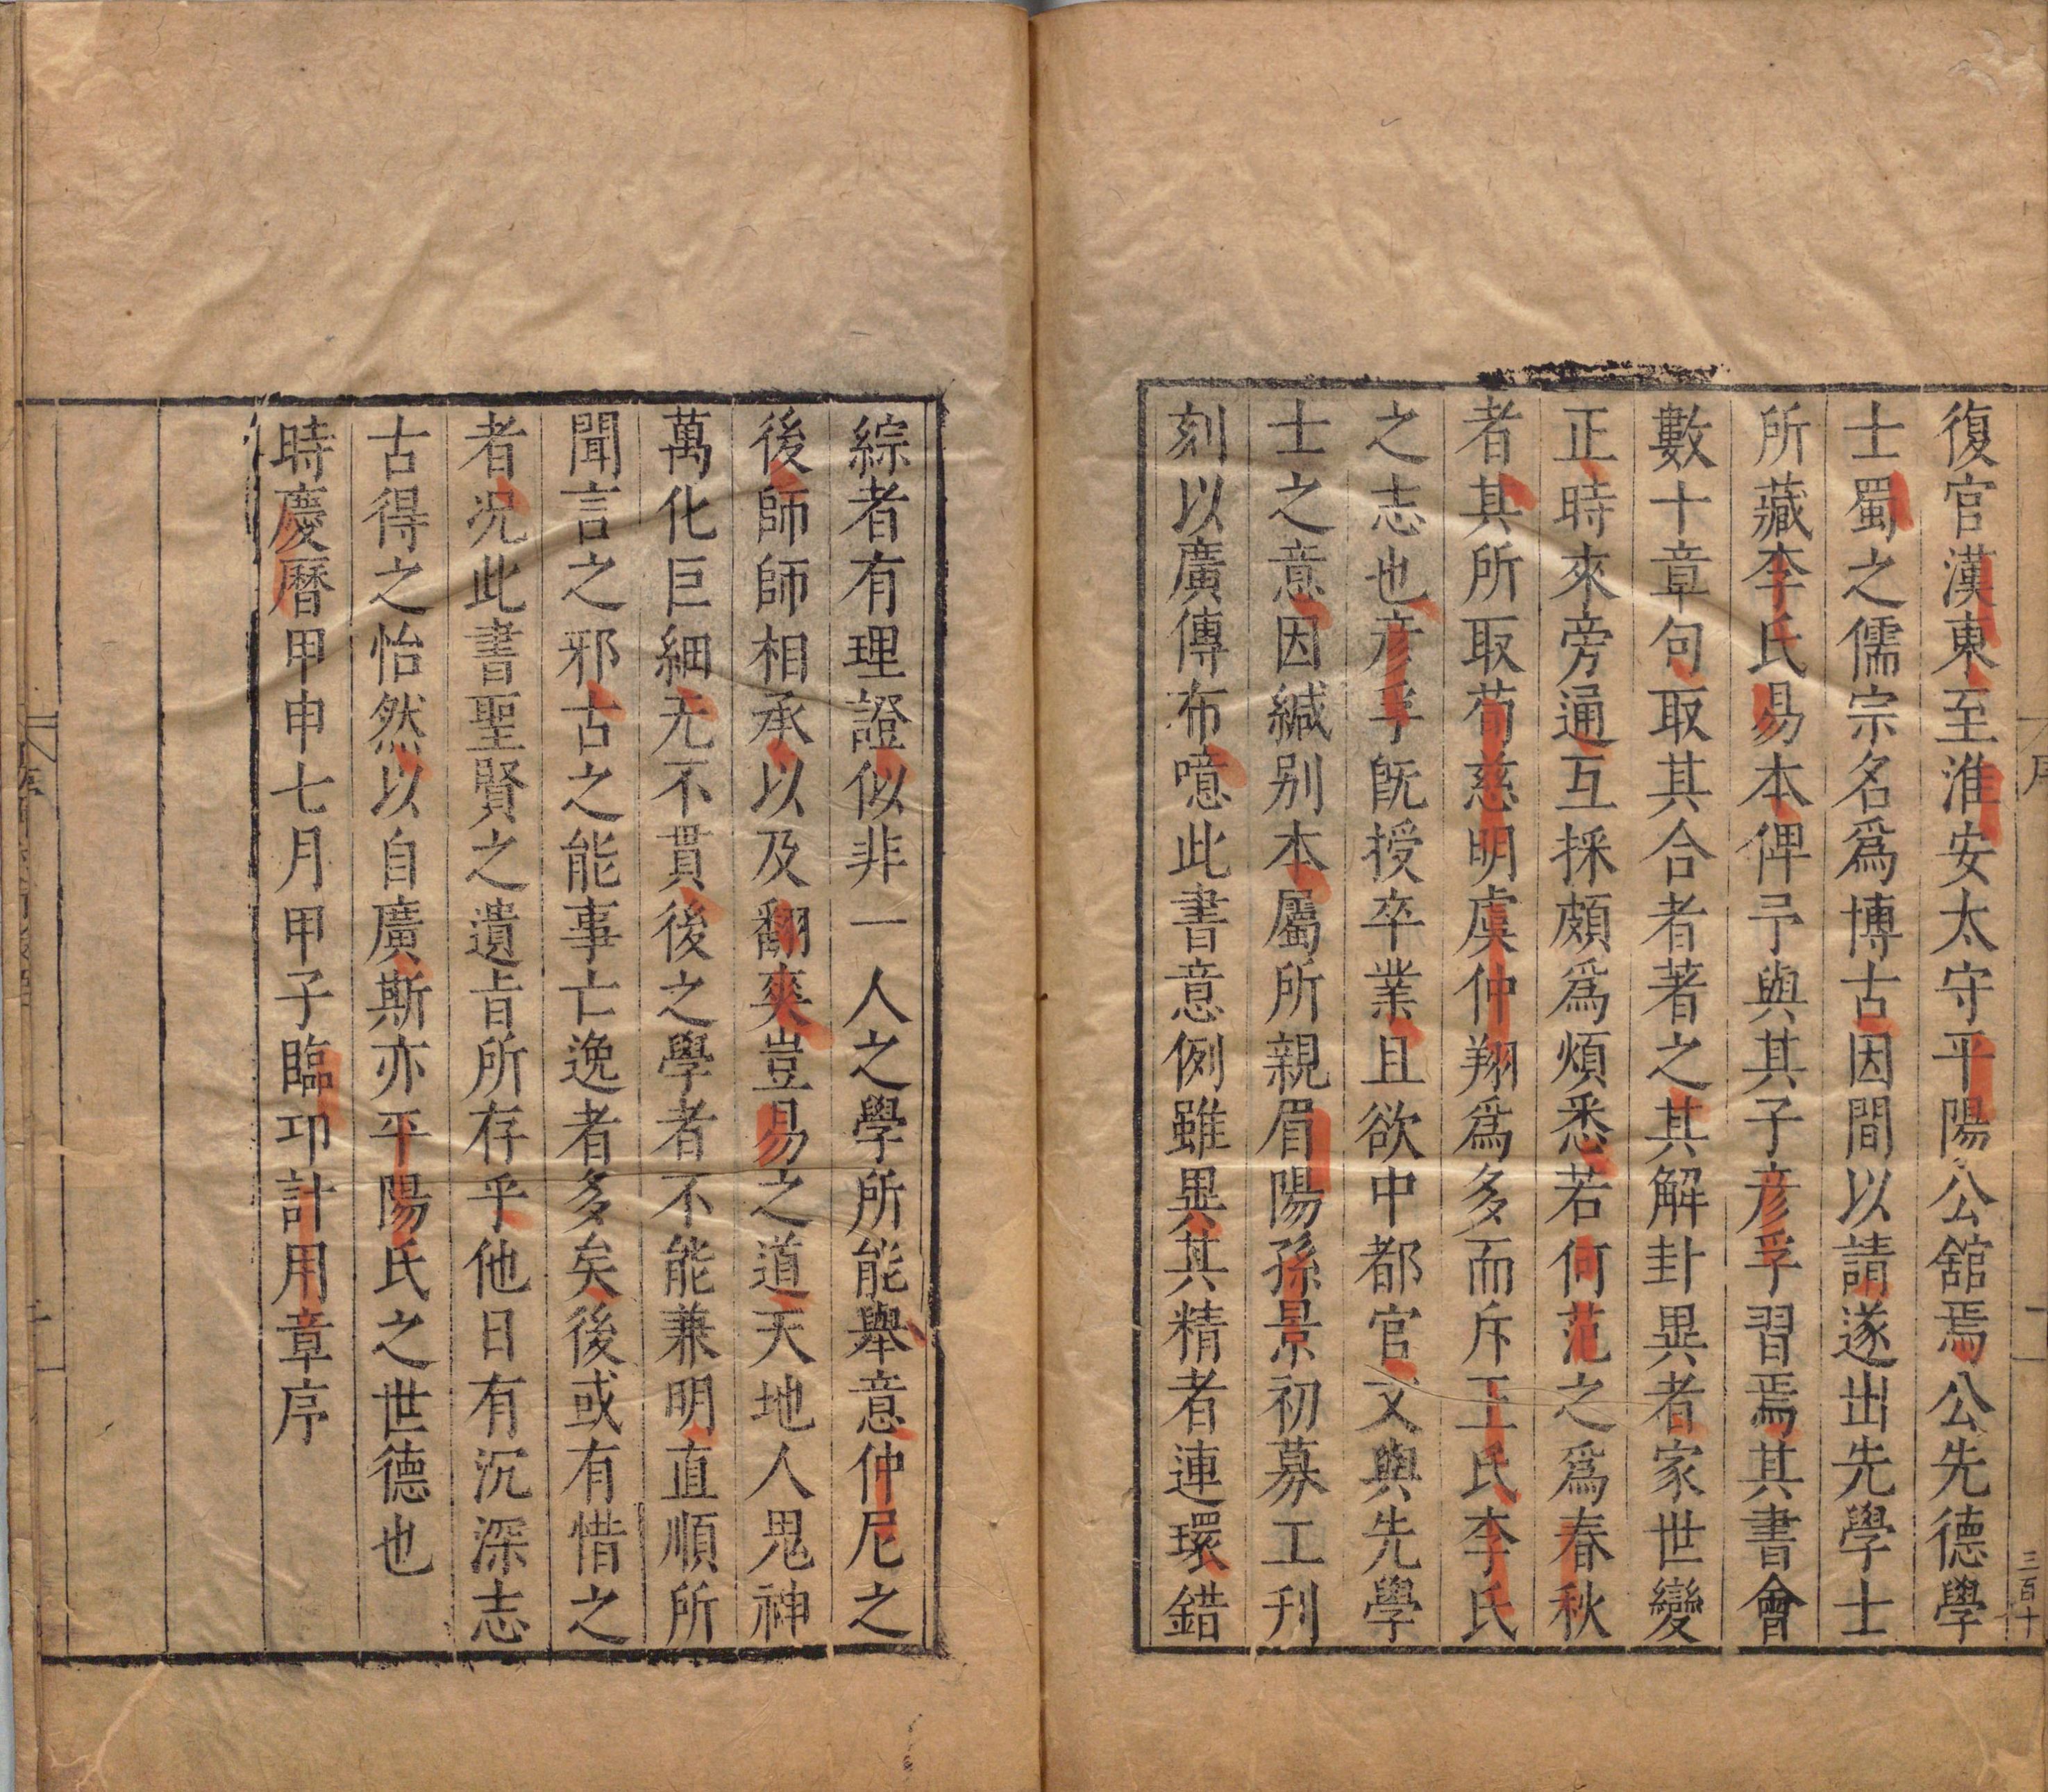 復官漢東至淮安太守平陽公舘焉公先德學
士蜀之儒宗名爲博古因間以請遂出先學士
所藏李氏易本俾予與其子彥孚習焉其書會
數十章句取其合者著之其解卦異者家世變
正時來旁通互採頗爲煩悉若何范之爲春秋
者其所取荀慈明虞仲翔爲多而斥王氏李氏
之志也彥孚既授卒業且欲中都官文與先學
士之意因緘别本屬所親眉陽孫景初募工刋
刻以廣傳布噫此書意例雖異其精者連環錯
三百十
綜者有理證似非一人之學所能舉意仲尼之
後師師相承以及翻爽豈易之道天地人鬼神
萬化巨細无不貫後之學者不能兼明直順所
聞言之邪古之能事亡逸者多矣後或有惜之
者况此書聖賢之遺旨所存乎他日有沉深志
古得之怡然以自廣斯亦平陽氏之世德也
時慶曆甲申七月甲子臨邛計用章序